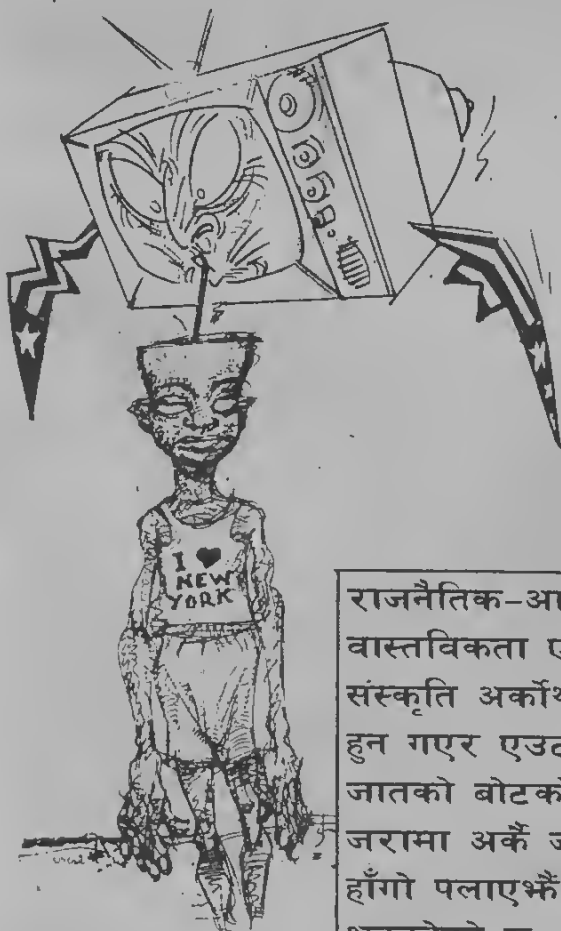 I ♥
NEW
YORK
राजनैतिक-आ
वास्तविकता ए
संस्कृति अर्कोथ
हुन गएर एउट
जातको बोटको
जरामा अर्कै ज
हाँगो पलाएझैं